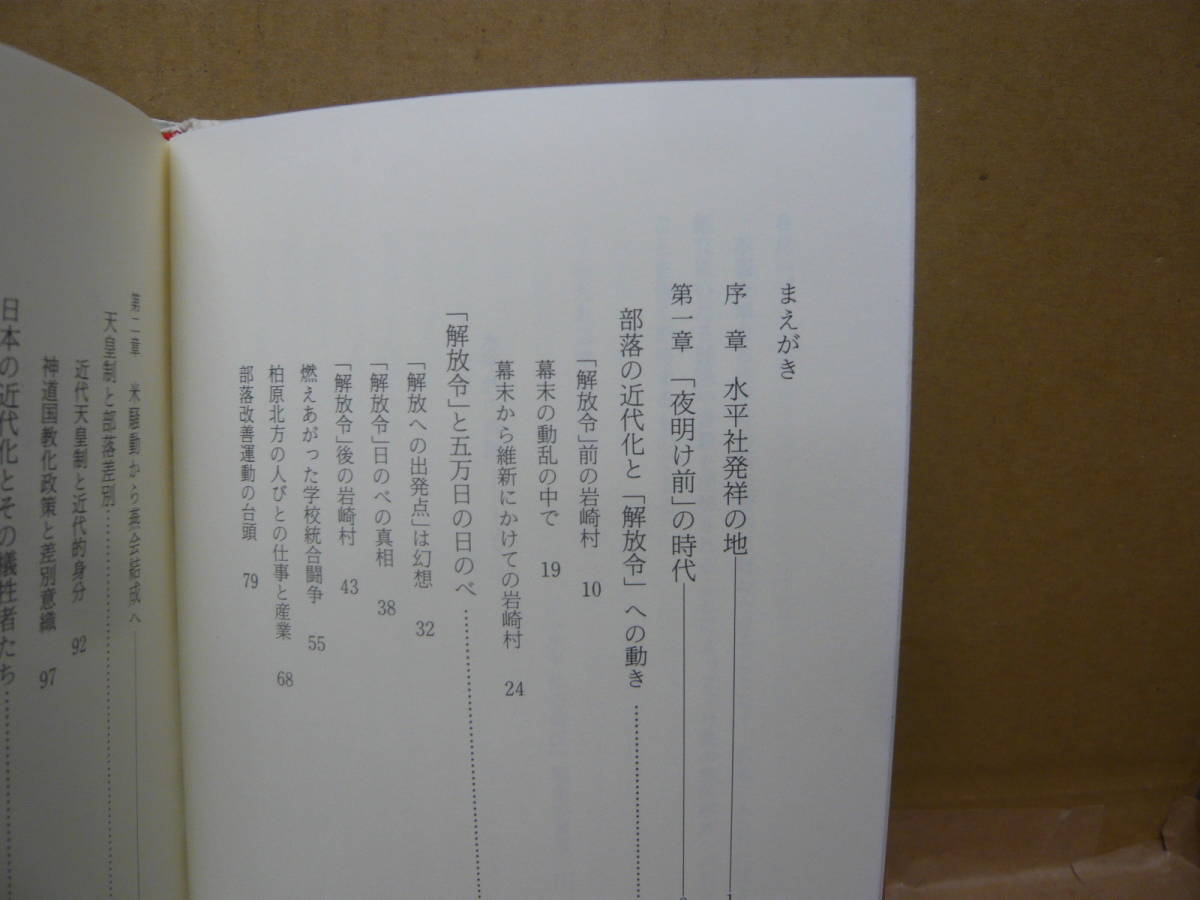 まえがき
序　章　水平社発祥の地
第一章　「夜明け前」の時代
部落の近代化と「解放令」への動き
「解放令」前の岩崎村　10
幕末の動乱の中で　19
幕末から維新にかけての岩崎村　24
「解放令」と五万日の日のべ
「解放への出発点」は幻想　32
「解放令」日のべの真相　38
「解放令」後の岩崎村　43
燃えあがった学校統合闘争　55
柏原北方の人びとの仕事と産業　68
部落改善運動の台頭　79
第二章　米騒動から燕会結成へ
天皇制と部落差別
近代天皇制と近代的身分　92
神道国教化政策と差別意識　97
日本の近代化とその犠牲者たち